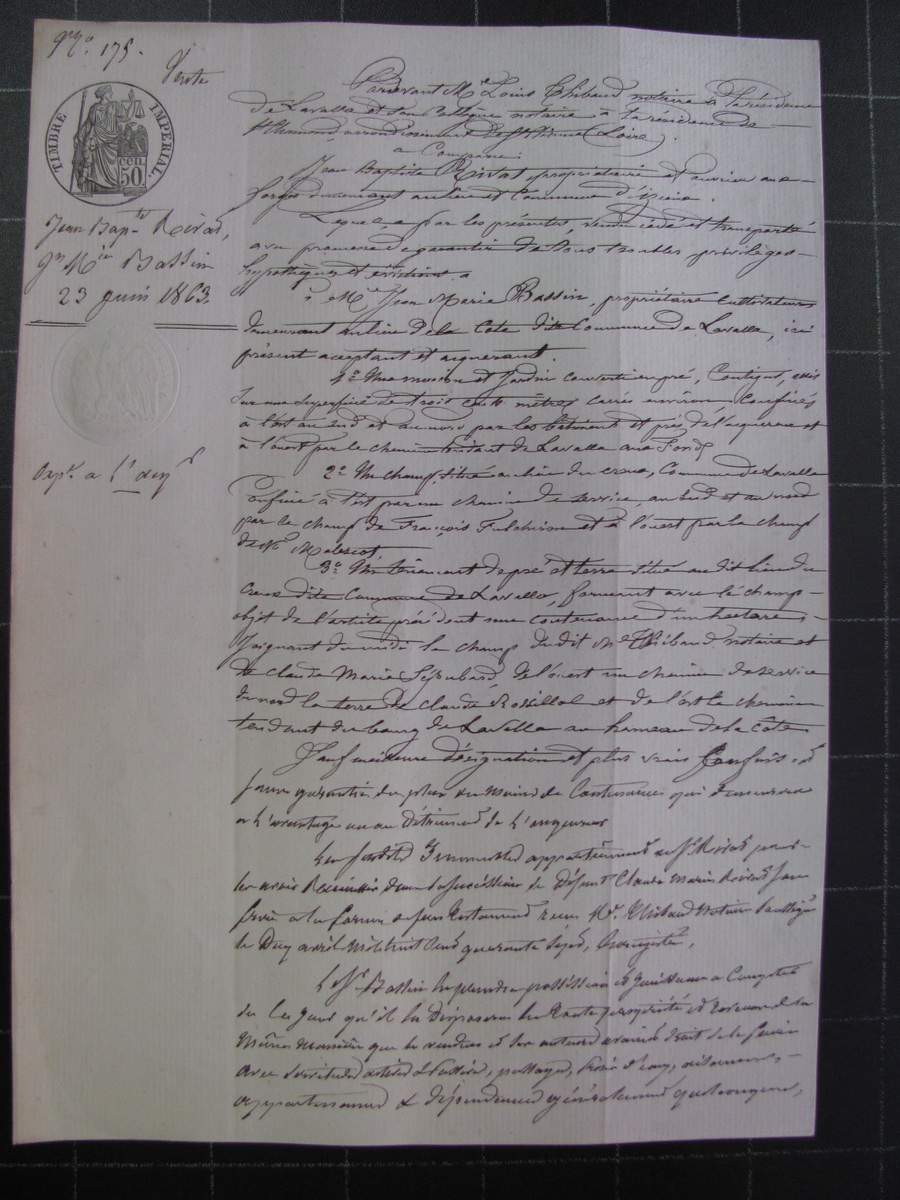 N.o 175.
Vente
TIMBRE IMPÉRIAL.
50 cen
Jean Bap.te Rivat,
Jn Mie Bassin
23 juin 1863.
Exp.n à l'acq.r
Pardevant Me Louis Thibaud notaire à la résidence
de Lavalla et son collègue notaire à la résidence de
St Chamond, arrondissement de St Etienne (Loire).
a Comparu:
Jean Baptiste Rivat propriétaire et ouvrier aux
forges demeurant au lieu et Commune d'Izieux.
Lequel a par les présentes, vendu cédé et transporté
avec promesse de garantie de tous troubles privilèges
hypothèques et évictions
à Mr Jean Marie Bassin, propriétaire cultivateur
demeurant au lieu de la Cote dite Commune de Lavalla, ici
présent acceptant et acquérant.
1o Une maison et jardin converti en pré, Contigus, assis
sur une superficie de trois cents mètres carrés environ Confinés
à l'est au sud et au nord par les bâtiment et prés de l'acquéreur et
à l'ouest par le chemin tendant de Lavalla aux Fonds
2o Un champ situé au lieu du creux, Commune de Lavalla
Confiné à l'est par un chemin de service, au sud et au nord
par le champ de François Fulchiron et à l'ouest par le champ
de Mr
3o Un tènement de pré et terre situé au dit lieu du
Creux dite Commune de Lavalla, formant avec le champ
objet de l'article précédent une contenance d'un hectare
Joignant du midi le champ du dit Me Thibaud notaire et
de Claude Marie de l'ouest un chemin de service
du nord la terre de Claude et de l'est le chemin
tendant du bourg de Lavalla au hameau de la côte
Sauf meilleure désignation et plus vrais Confins et
sans garantie du plus ou moins de Contenance qui demeurera
à l'avantage ou au détriment de l'acquéreur
Les fonds appartiennent au Sr Rivat pour
les avoir Recueillis dans la succession de défunt Claude Marie Rivat son
à la forme de son testament reçu Me Thibaud Notaire
le Dix avril Mil huit Cent quarante sept, Enregistré,
Le Sr Bassin en prendra possession et jouissance à Compter
de Ce jour qu'il en Disposera en toute propriété et Revenu de la
Même manière que le vendeur et ses auteurs avaient droit de le faire
avec servitudes actives et passives, passages, prises d'eau, aisances,
appartenances & dépendances généralement quelconques,